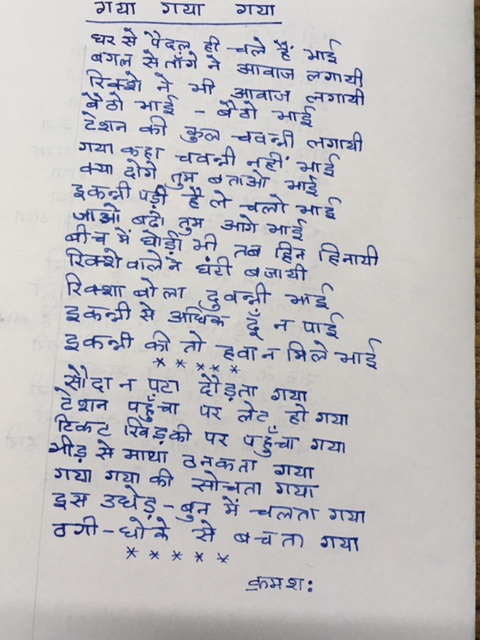 गया गया गया
घर से पैदल ही चले हैं भाई
बगल से ताँगे ने आवाज लगायी
रिक्शे ने भी आवाज लगायी
बैठो भाई - बैठो भाई
टेशन की कुल चवन्नी लगायी
गया कहा चवन्नी नहीं भाई
क्या दोगे तुम बताओ भाई
इकन्नी पड़ी है ले चलो भाई
जाओ बढ़ो तुम आगे भाई
बीच में घोड़ी भी तब हिन हिनायी
रिक्शे वाले ने घंटी बजायी
रिक्शा बोला दुवन्नी भाई
इकन्नी से अधिक दूँ न पाई
इकन्नी की तो हवा न मिले भाई
* * * * *
सौदा न पटा दौड़ता गया
टेशन पहुँचा पर लेट हो गया
टिकट खिड़की पर पहुँचा गया
भीड़ से माथा ठनकता गया
गया गया की सोचता गया
इस उधेड़ - बुन में चलता गया
ठगी - धोके से बचता गया
* * * * *
क्रमश: